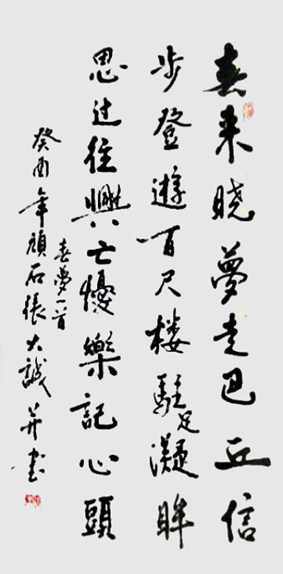 春来晓夢走巴丘信
步登遊百尺楼駐足凝眸
思过往興亡懮樂記心頭
春夢一首
癸酉年頑石張大誠并書